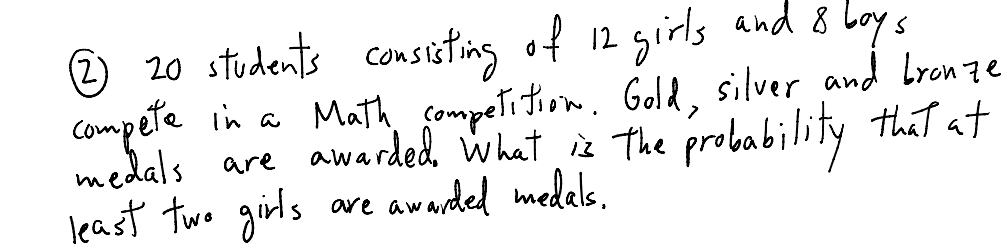 ② 20 students consisting of 12 girls and 8 boys
compete in a Math competition. Gold, silver and bronze
medals are awarded. What is the probability that at
least two girls are awarded medals.